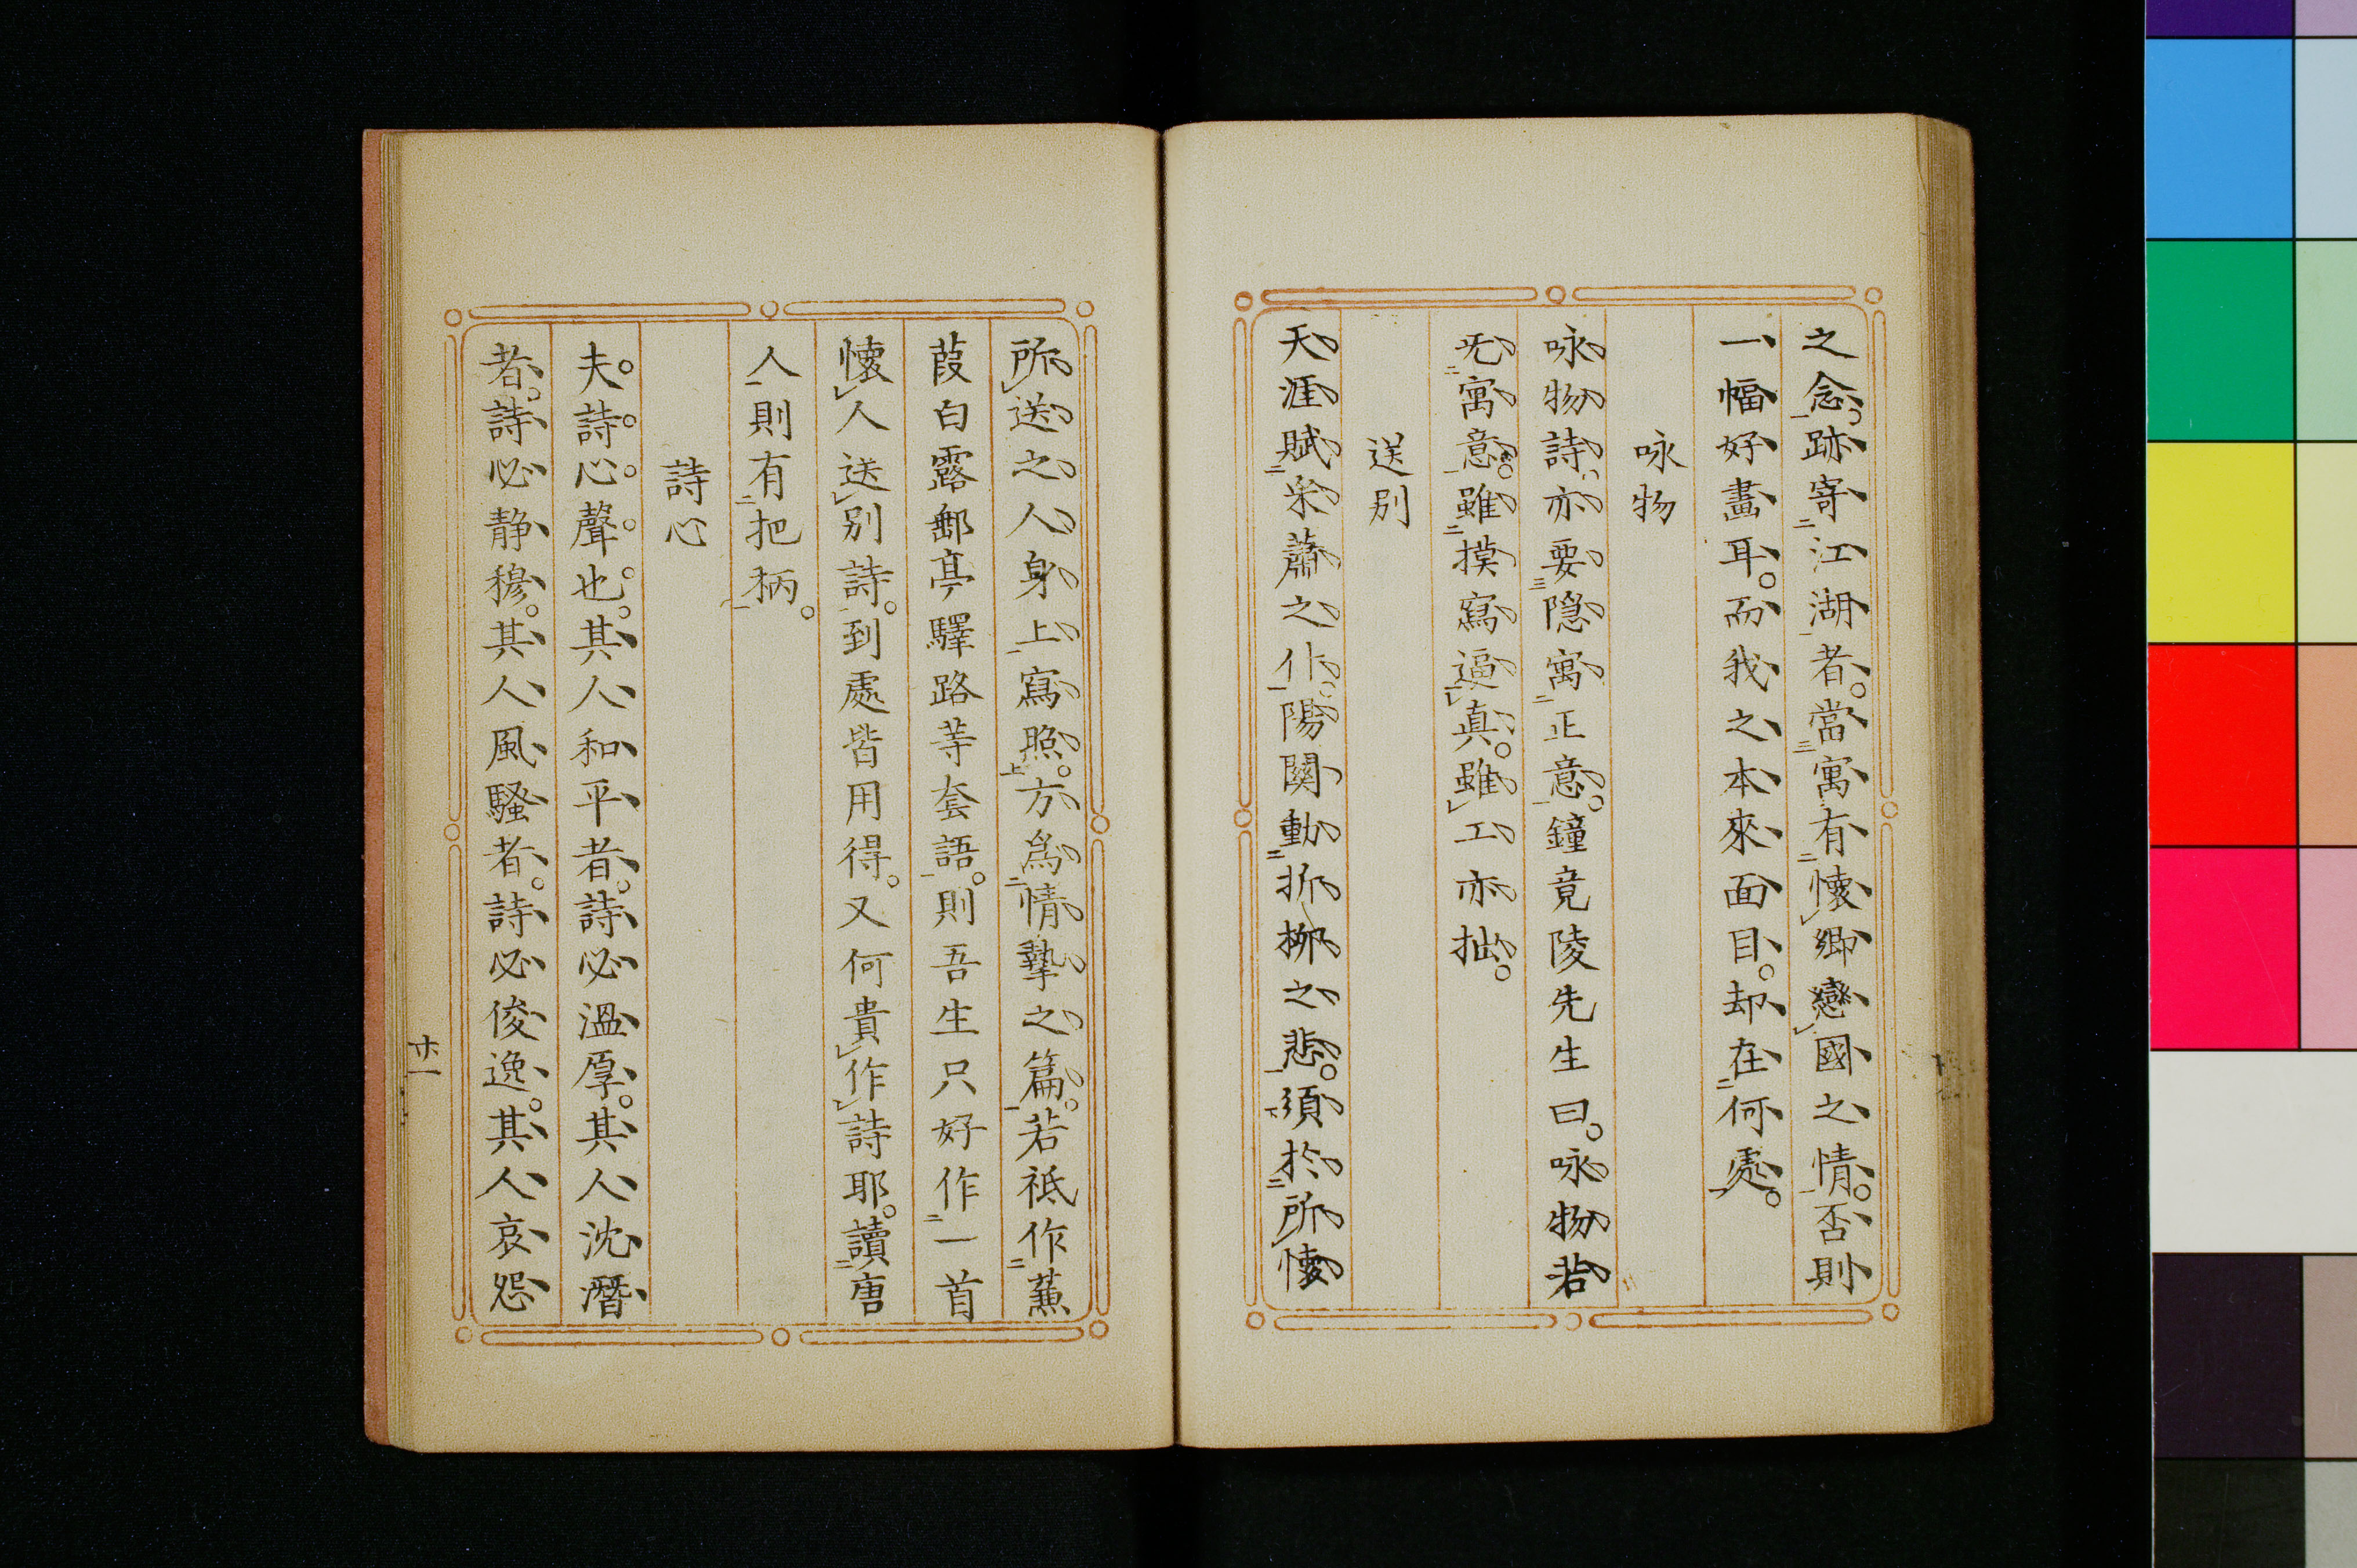 之念。跡寄江湖者。當寓有懷鄉戀國之情。否則
一幅好畫耳。而我之本來面目。却在何處。
咏物
咏物詩亦要隱寓正意。鐘竟陵先生曰。咏物若
无寓意。雖摸寫逼真。雖工亦拙。
送別
天涯賦采蕭之作。陽関動折柳之悲。須於所懷
所送之人身上寫照。方為情摯之篇。若祗作蒹
葭白露郵亭驛路等套語。則吾生只好作一首
懷人送別詩。到處皆用得。又何貴作詩耶。讀唐
人則有把柄。
詩心
夫。詩。心。聲。也。其人和平者。詩必溫厚。其人沈潛
者。詩必静穆。其人風騷者。詩必俊逸。其人哀怨
廿一